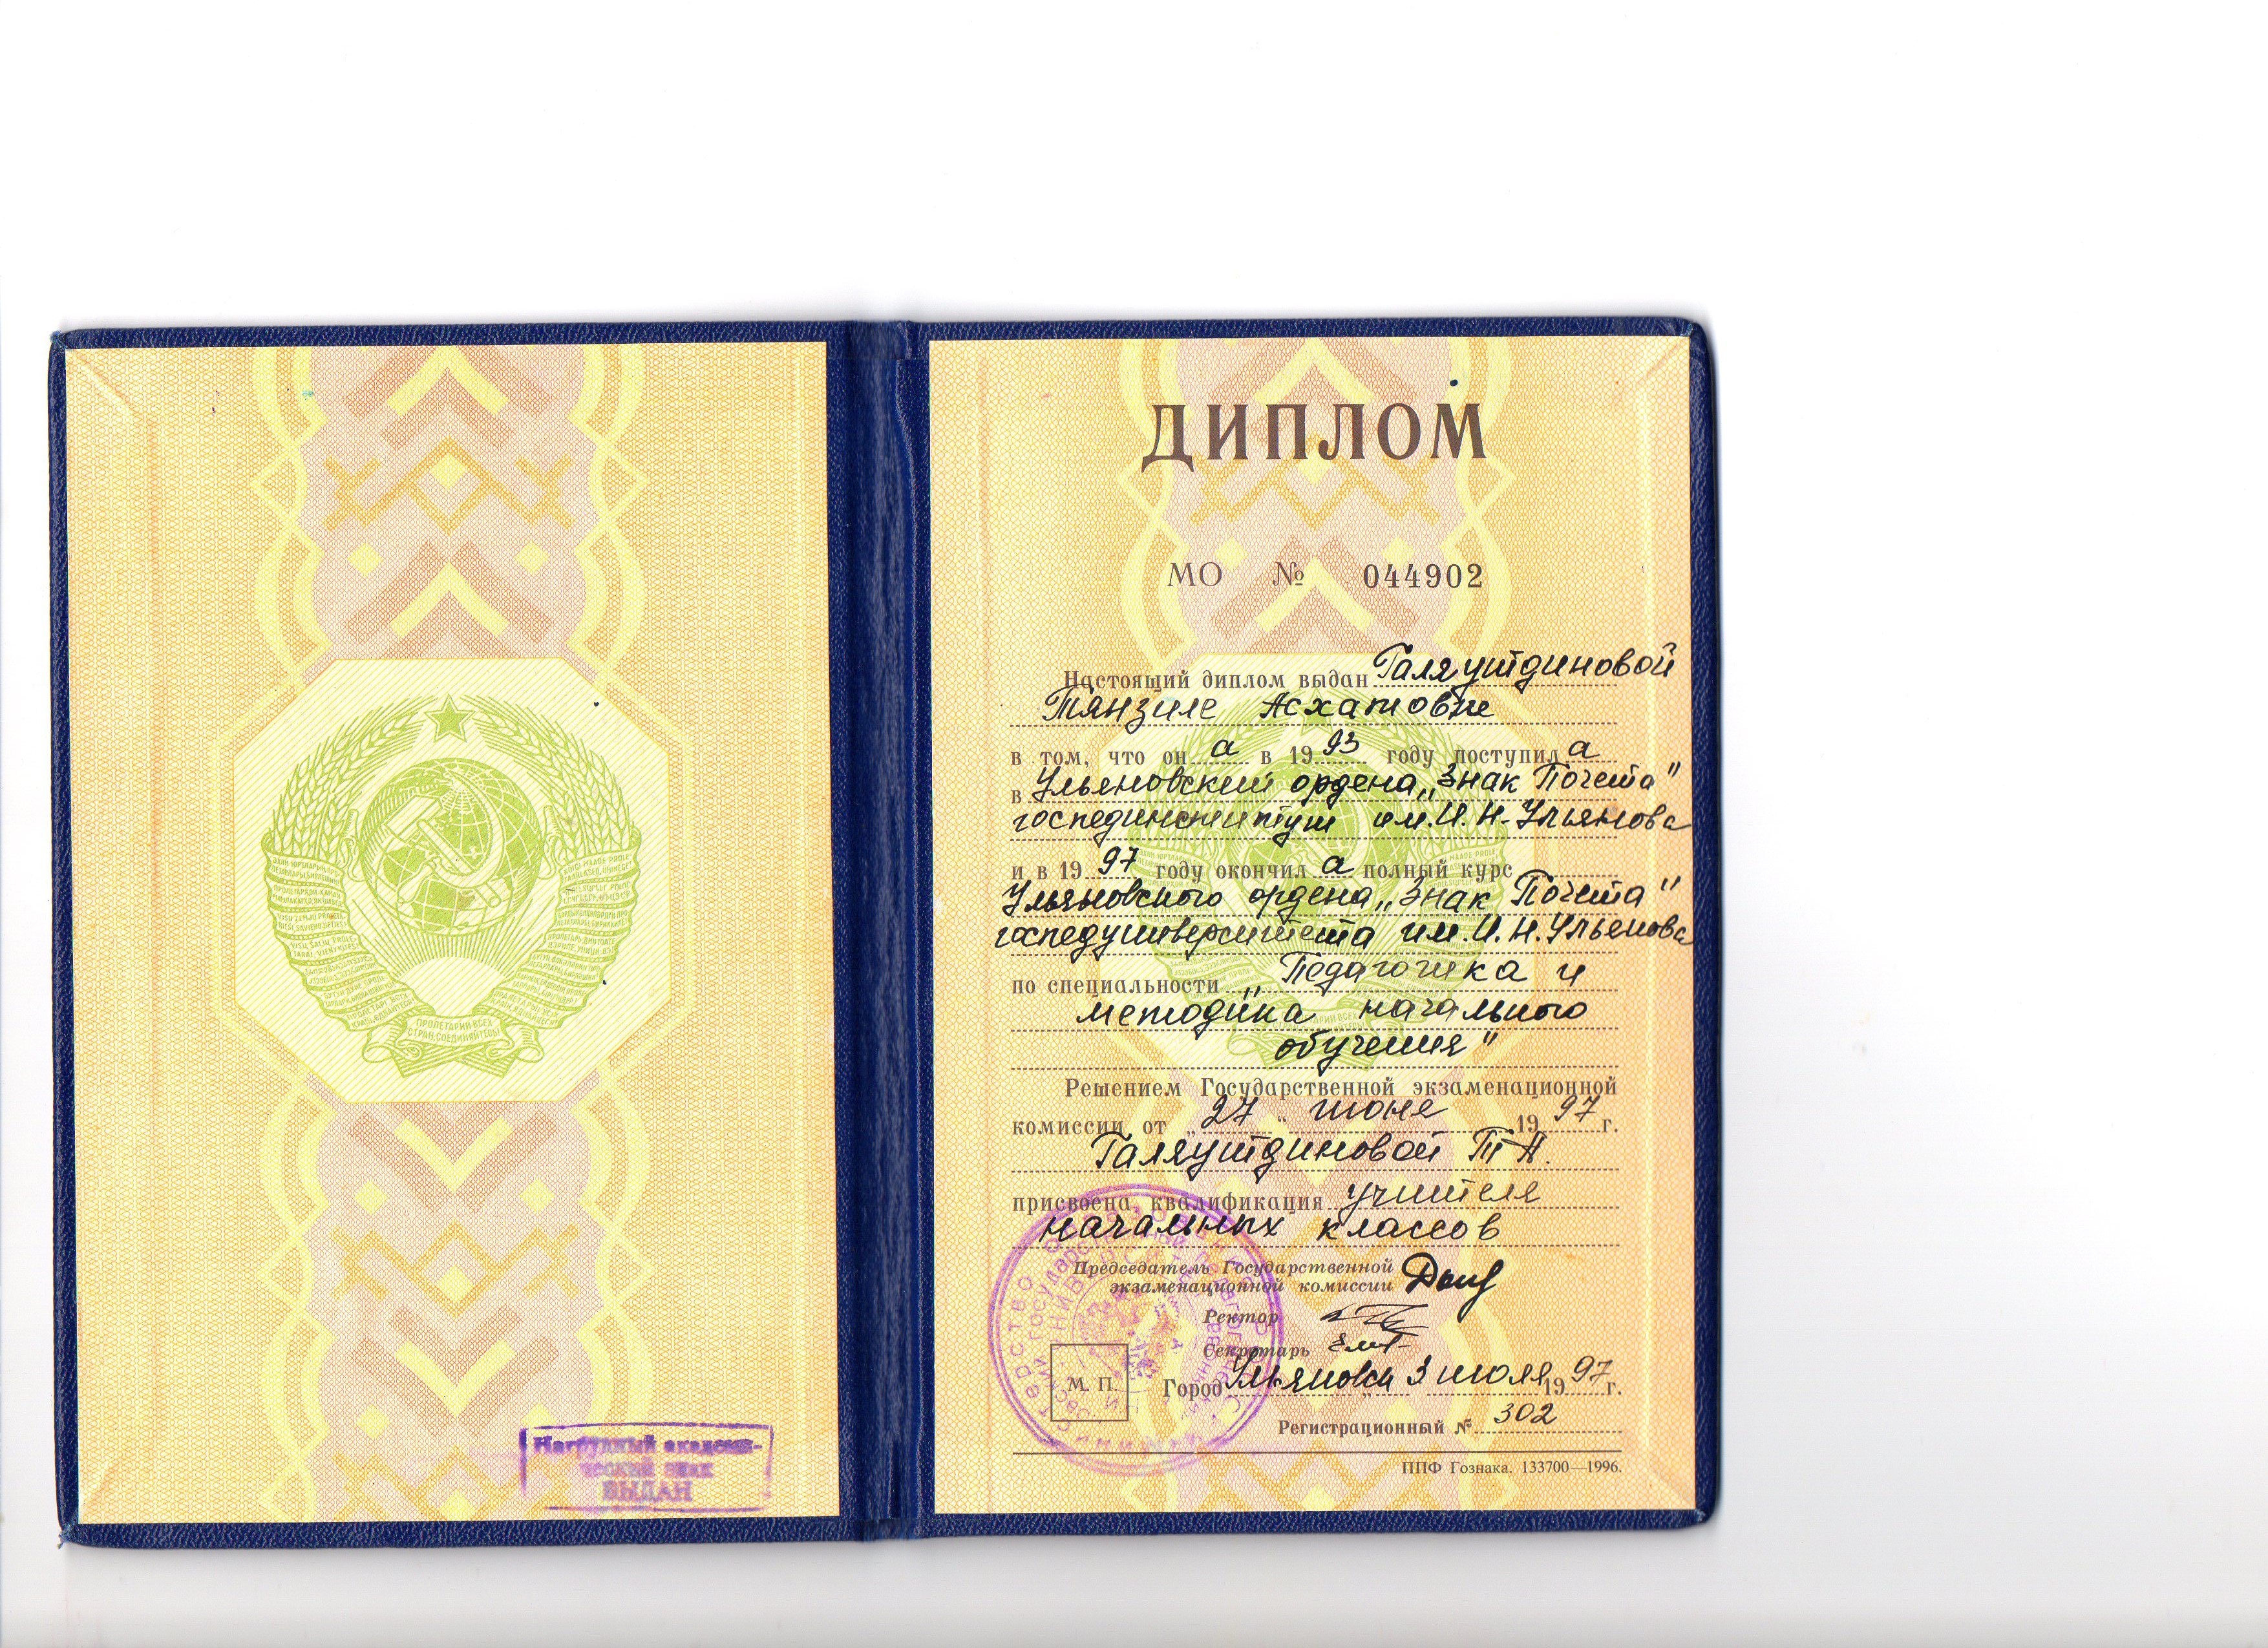 ДИПЛОМ
МО № 044902
Настоящий диплом выдан Галяутдиновой
Тянзиле Асхатовне
в том, что он а в 1993 году поступил а
в Ульяновский ордена „Знак Почета"
госпединститут им. И. Н. Ульянова
и в 1997 году окончил а полный курс
Ульяновского ордена „Знак Почета"
госпедуниверситета им. И. Н. Ульянова
по специальности „Педагогика и
методика начального
обучения"
Решением Государственной экзаменационной
комиссии от „27" июня 1997 г.
Галяутдиновой Т А.
присвоена квалификация учителя
начальных классов
Председатель Государственной
экзаменационной комиссии
Ректор
Секретарь
М. П.
Город Ульяновск 3 июля 1997 г.
Регистрационный № 302
ППФ Гознака. 133700—1996.
ПРОЛЕТАРИИ ВСЕХ
СТРАН, СОЕДИНЯЙТЕСЬ!
Нагрудный академи-
ческий знак
ВЫДАН